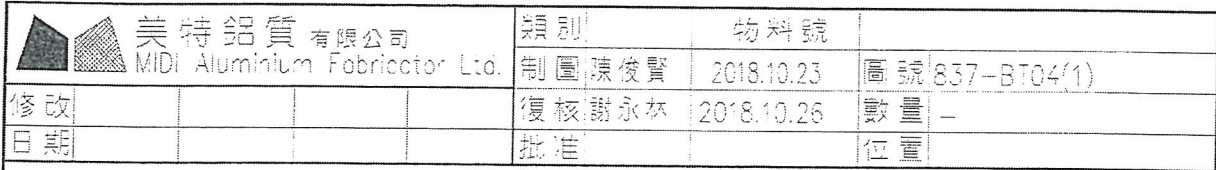 美特鋁質有限公司
MIDI Aluminium Fabricator Ltd.
類別 物料號
制圖 陳俊賢 2018.10.23 圖號 837-BT04(1)
修改 復核 謝永林 2018.10.26 數量 –
日期 批准 位置